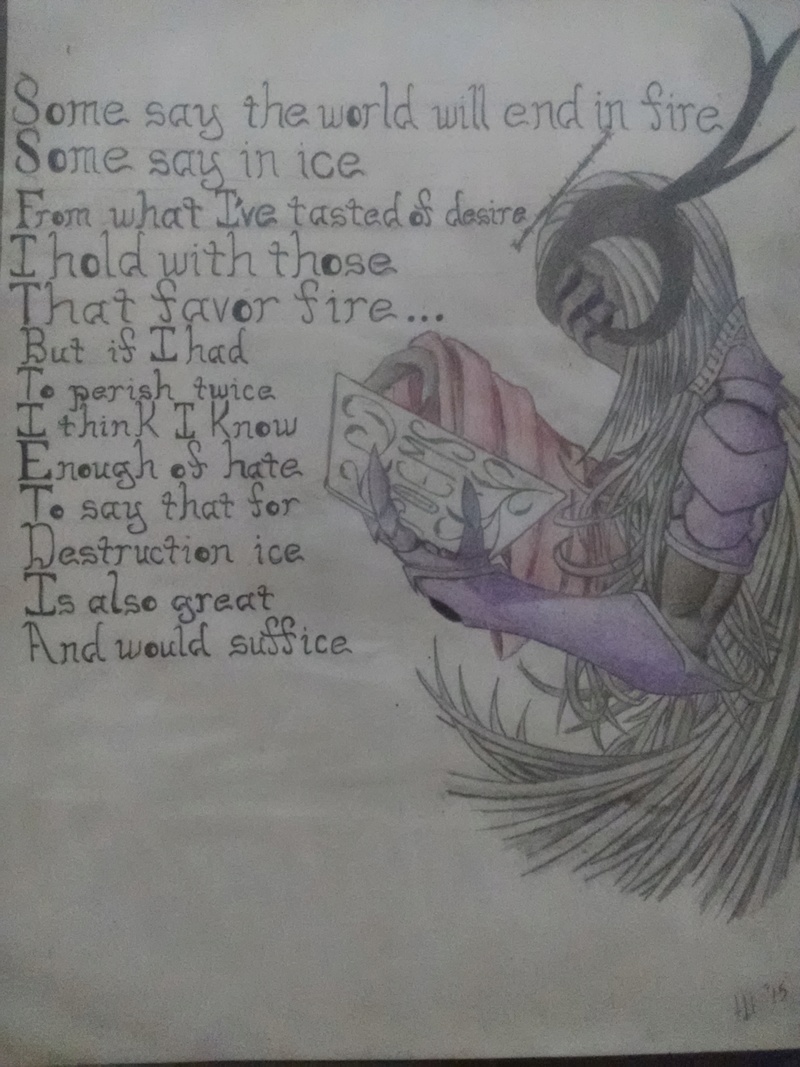 Some say the world will end in fire
Some say in ice
From what I've tasted of desire
I hold with those
That favor fire...
But if I had
To perish twice
I think I Know
Enough of hate
To say that for
Destruction ice
Is also great
And would suffice
'15